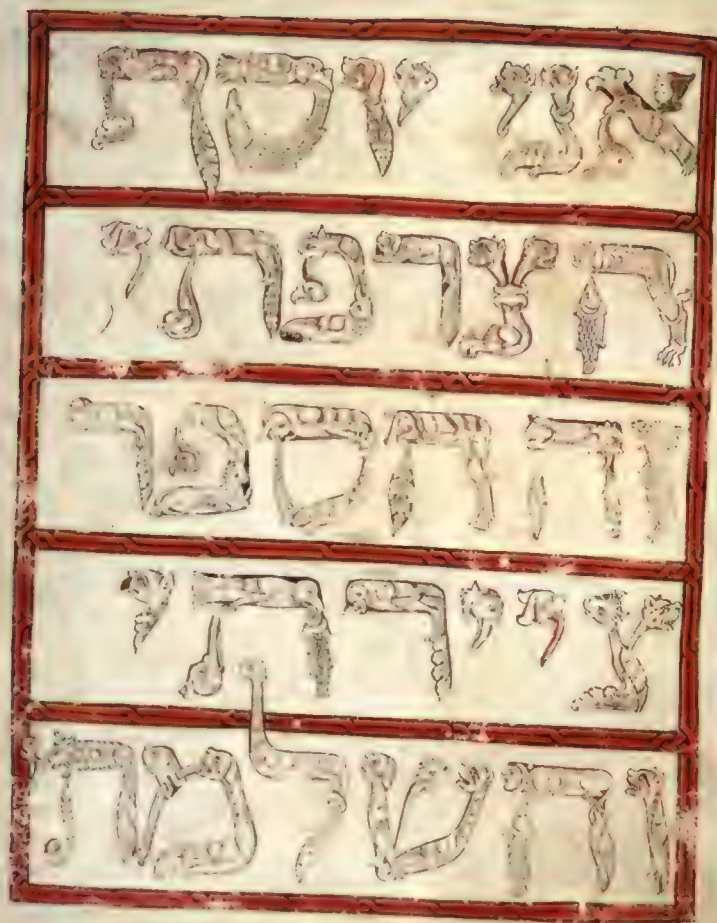 אני יוסף
הצרפתי
זה הספר
ציירתי
והשלמתי